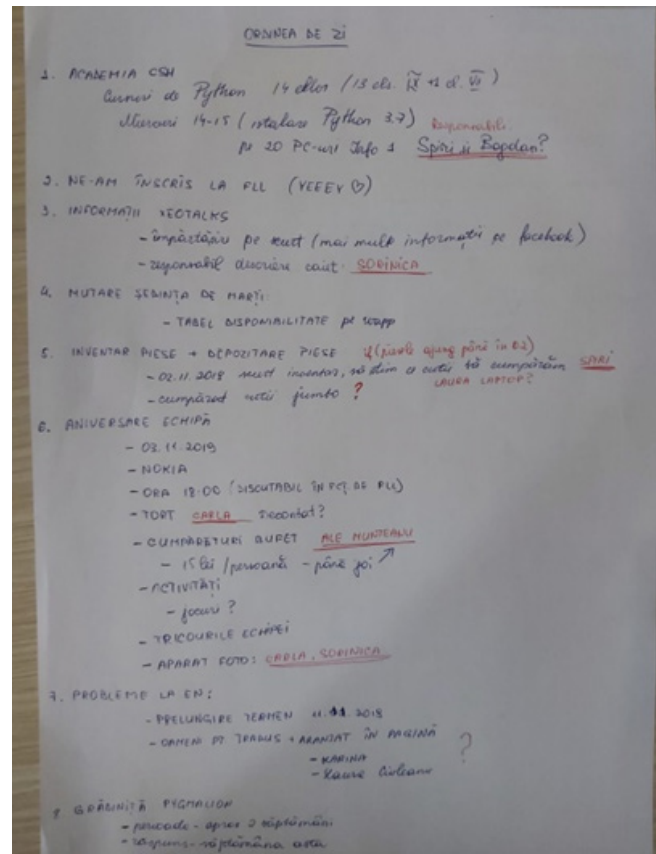 ORDINEA DE ZI
1. ACADEMIA CSH
Cursuri de Python 14 elevi (13 cls. IX + 1 cl. VI)
Miercuri 14-15 (instalare Python 3.7) Responsabili:
pe 20 PC-uri Info 1 Spiri și Bogdan?
2. NE-AM ÎNSCRIS LA FLL (YEEEY ♡)
3. INFORMAȚII XEOTALKS
- împărtășire pe scurt (mai multe informații pe facebook)
- responsabil descriere caiet: SORINICA
4. MUTARE ȘEDINȚA DE MARȚI:
- TABEL DISPONIBILITATE pe wapp
5. INVENTAR PIESE + DEPOZITARE PIESE (piesele ajung până în 02)
- 02.11.2018 scurt inventar, să știm ce cutii să cumpărăm SPIRI
- cumpărat cutii jumbo ? LAURA LAPTOP?
6. ANIVERSARE ECHIPĂ
- 03.11.2019
- NOKIA
- ORA 18:00 (DISCUTABIL ÎN FCȚ. DE FLL)
- TORT CARLA decontat?
- CUMPARĂTURI BUFET ALE MUNTEANU
- 15 lei /persoană - până joi ↗
- ACTIVITĂȚI
- jocuri ?
- TRICOURILE ECHIPEI
- APARAT FOTO: CARLA, SORINICA
7. PROBLEME LA EN:
- PRELUNGIRE TERMEN 11.11.2018
- OAMENI PT. TRADUS + ARANJAT ÎN PAGINĂ
- KARINA ?
- Laura
8 GRĂDINIȚĂ PYGMALION
- perioada - aprox 2 săptămâni
- răspuns - săptămâna asta